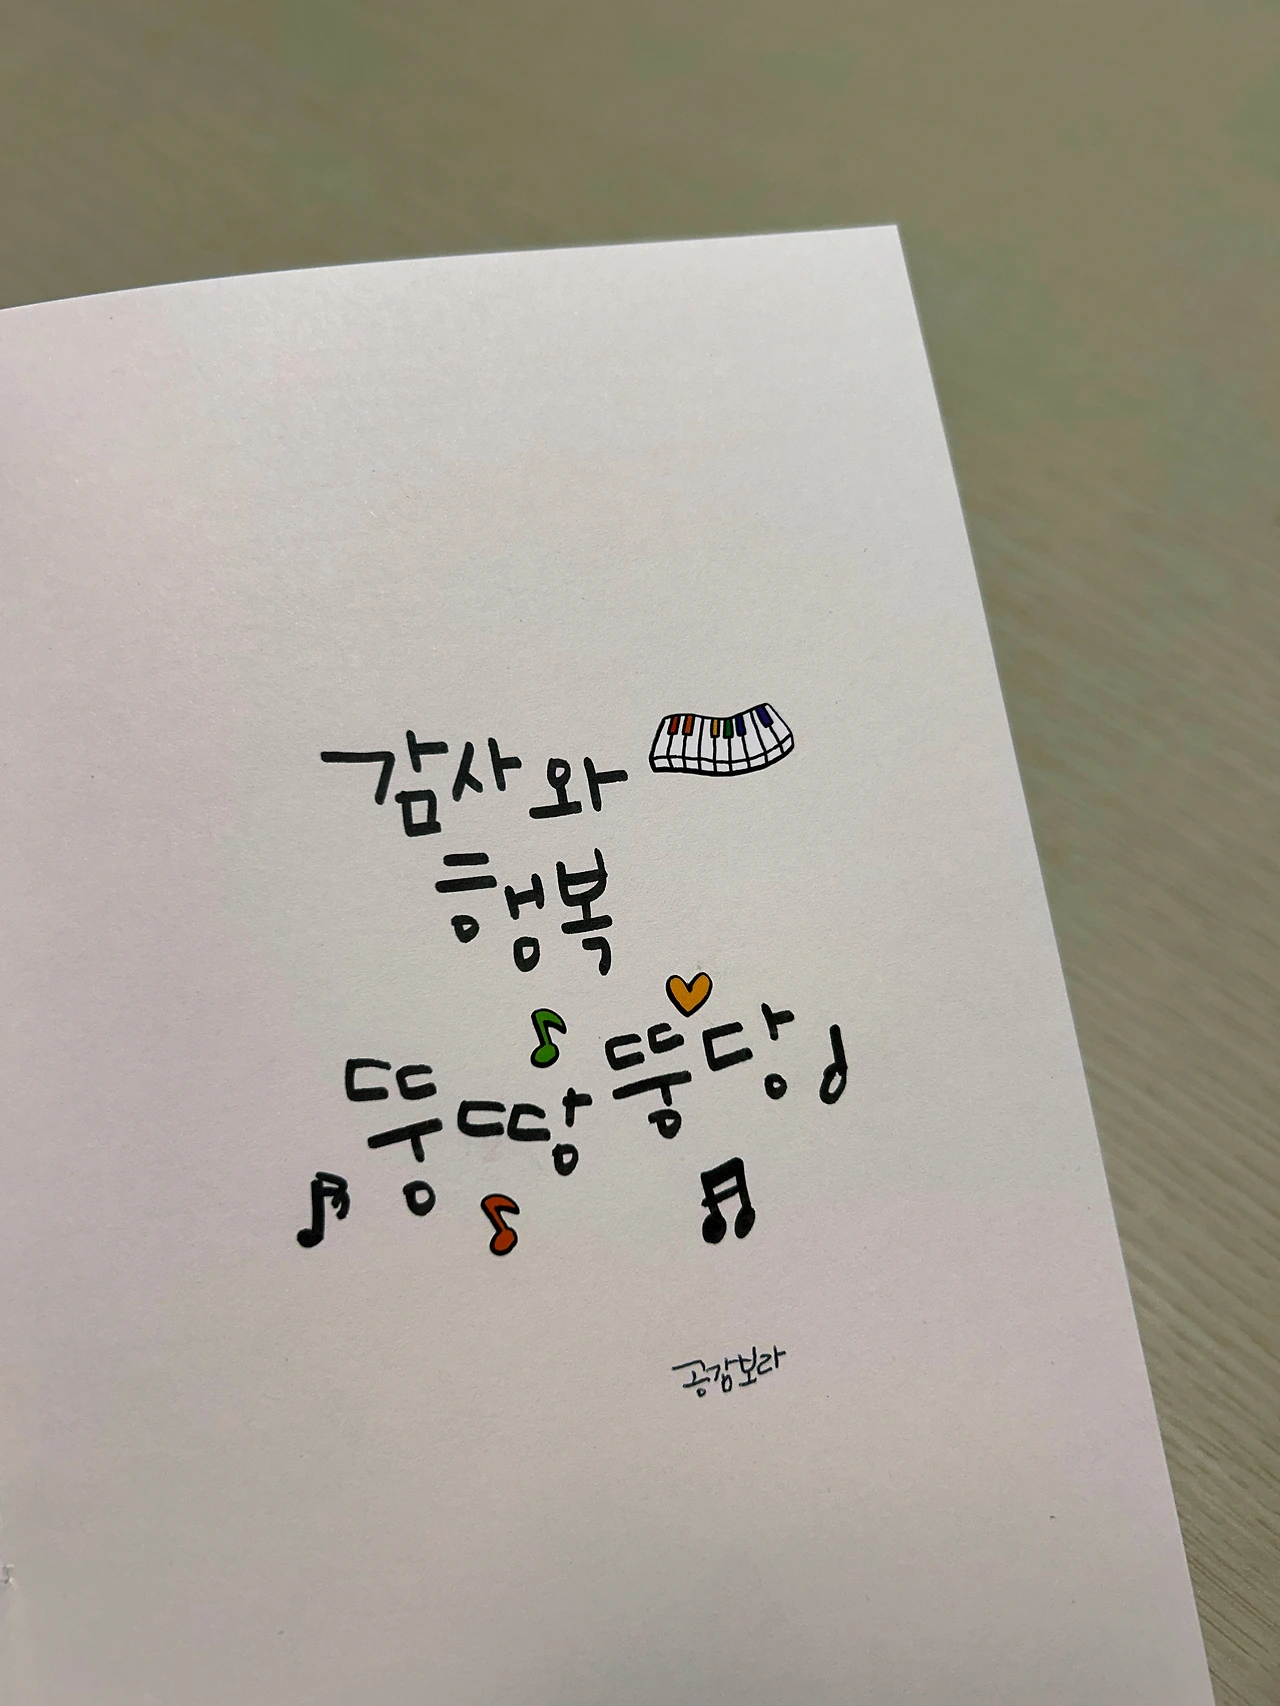 감사와
행복
뚱땅뚱당
공감보라